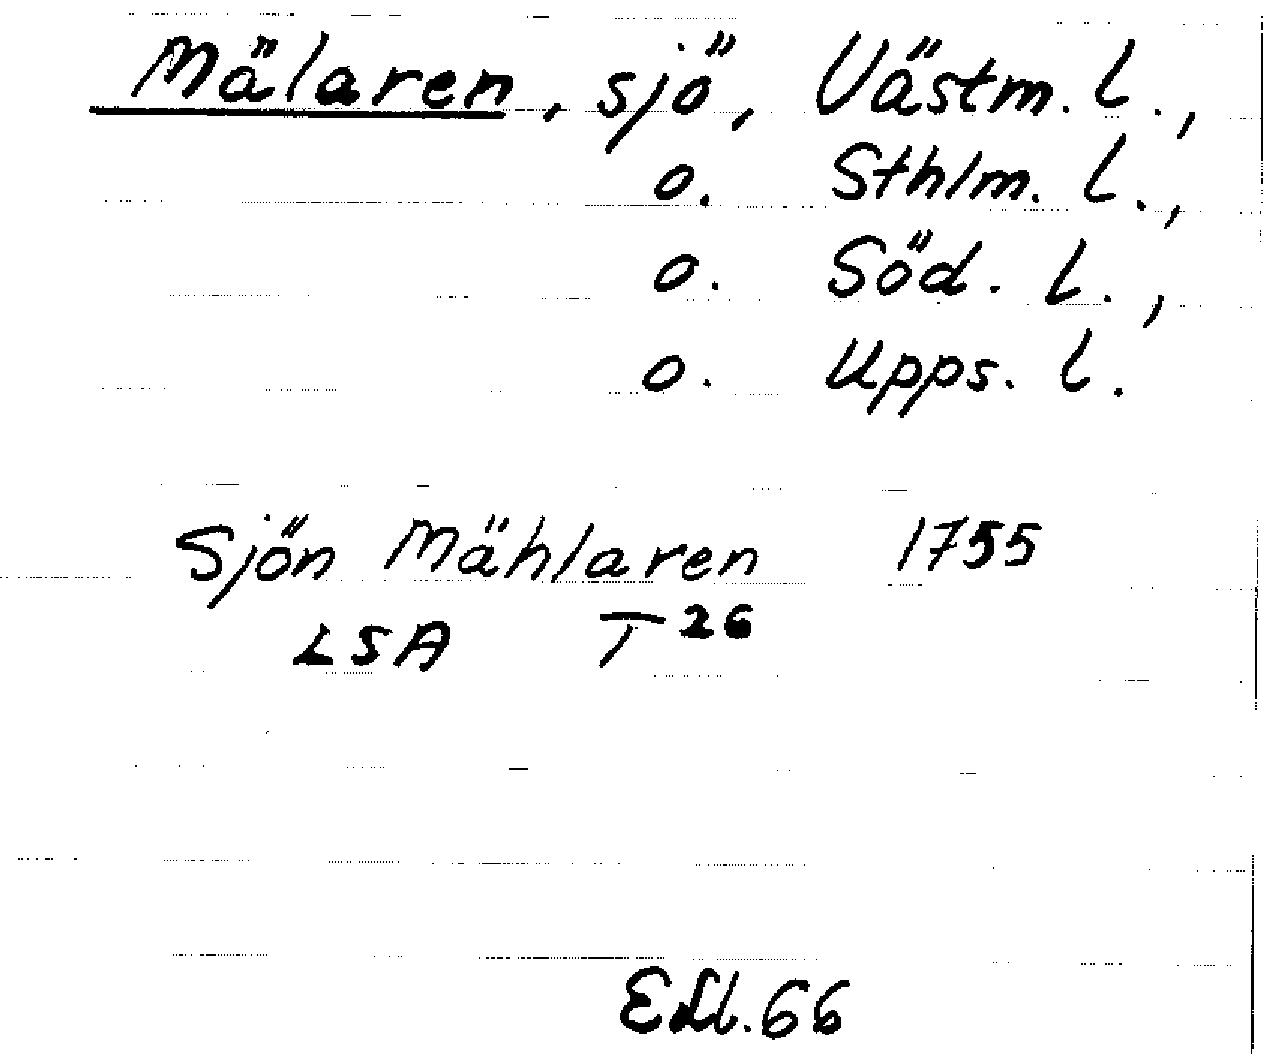 Mälaren, sjö, Västm. l.,
o. Sthlm. l.,
o. Söd. l.,
o. Upps. l.
Sjön Mählaren 1755
LSA T 26
66